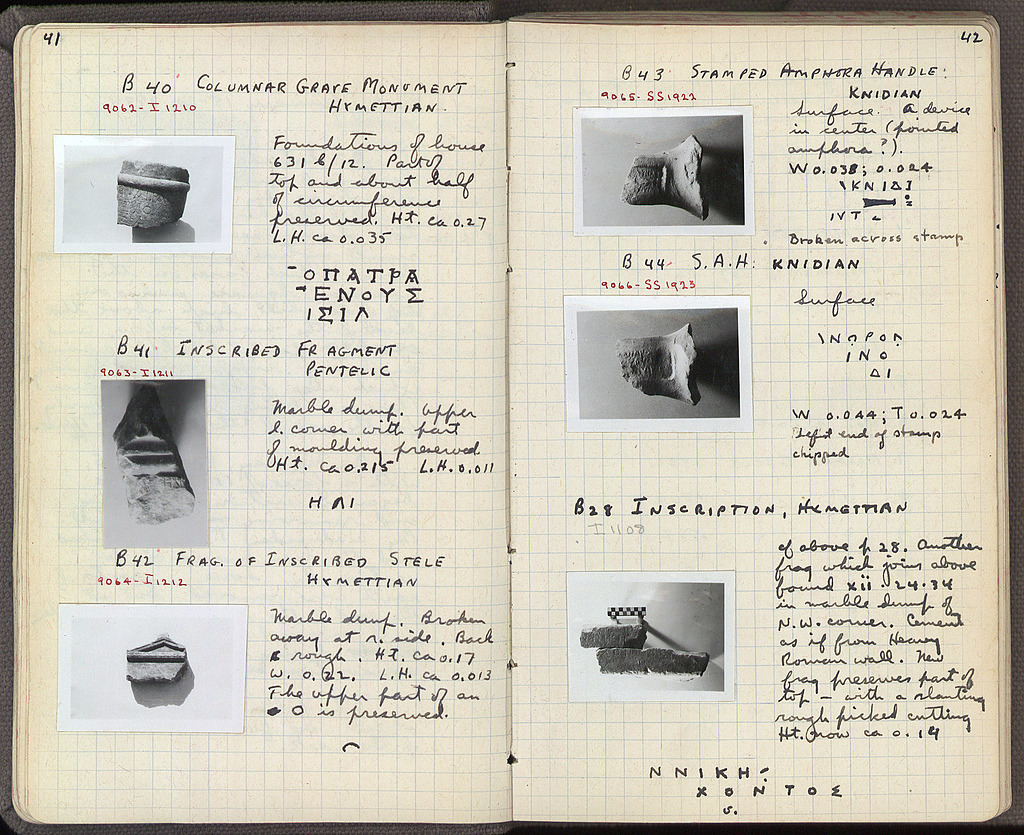 41
B 40 COLUMNAR GRAVE MONUMENT
HYMETTIAN.
9062-I 1210
Foundations of house
631 b/12. Part of
top and about half
of circumference
preserved. Ht. ca 0.27
L.H. ca 0.035
ΟΠΑΤΡΑ
ΕΝΟΥΣ
ΙΣΙΛ
B 41 INSCRIBED FRAGMENT
PENTELIC
9063-I 1211
Marble dump. Upper
l. corner with part
of moulding preserved
Ht. ca 0.215 L.H. 0.011
Η Λ Ι
B 42 FRAG. OF INSCRIBED STELE
HYMETTIAN
9064-I 1212
Marble dump. Broken
away at r. side. Back
rough. Ht. ca 0.17
W. 0.22. L.H. ca 0.013
The upper part of an
O is preserved.
42
B 43 STAMPED AMPHORA HANDLE:
KNIDIAN
9065-SS 1922
Surface. A device
in center (pointed
amphora?).
W 0.038; 0.024
\ΚΝΙΔΙ
ΙVΤ
Broken across stamp
B 44 S.A.H: KNIDIAN
9066-SS 1923
Surface
\ΝΟΡΟΛ
ΙΝΟ
ΔΙ
W 0.044; T 0.024
Left end of stamp
chipped
B28 INSCRIPTION, HYMETTIAN
I 1108
cf above p 28. Another
frag which joins above
found xii-24-34
in marble dump of
N.W. corner. Cement
as if from Heavy
Roman wall. New
frag preserves part of
top – with a slanting
rough picked cutting
Ht. now ca 0.14
Ν Ν Ι Κ Η
Χ Ο Ν Τ Ο Σ